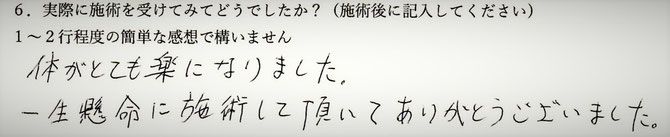 6．実際に施術を受けてみてどうでしたか？（施術後に記入してください）
1～2行程度の簡単な感想で構いません
体がとても楽になりました。
一生懸命に施術して頂いてありがとうございました。